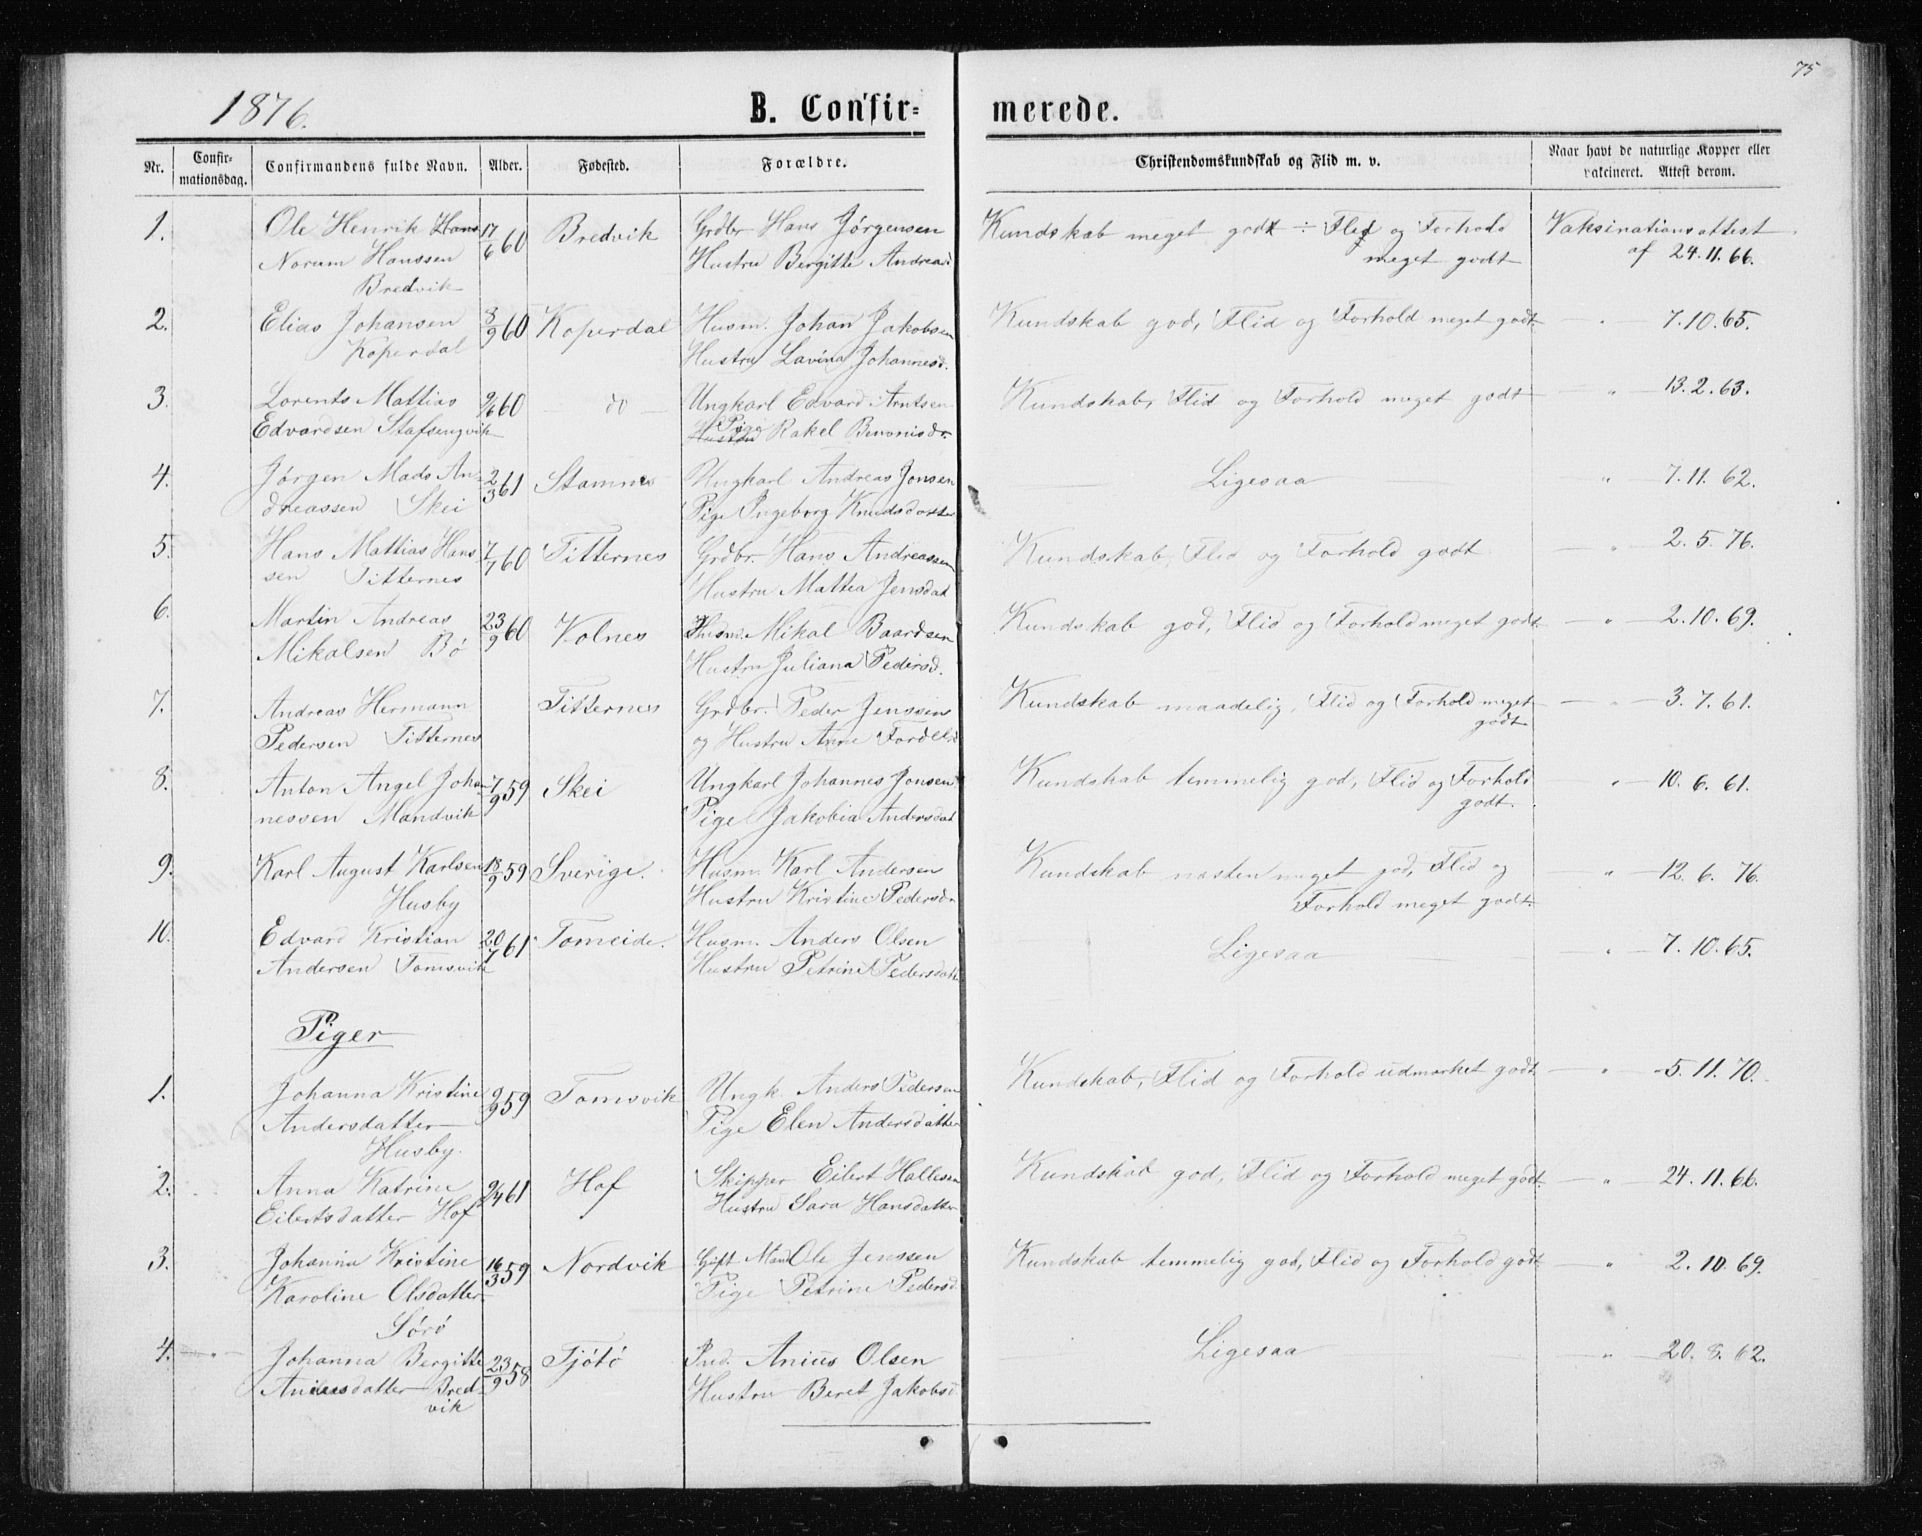 75
1876.
B. Confir- merede.
Nr. Confir- mationsdag. Confirmandens fulde Navn. Alder. Fødested. Forældre. Christendomskundskab og Flid m. v. Naar havt de naturlige Kopper eller vakcineret. Attest derom.
1. Ole Henrik Hans 17/6 60 Bredvik Grdbr Hans Jørgensen Kundskab meget godt ÷ Flid og Forhold Vaksinationsattest
Norum Hanssen Hustru Bergitte Andread. meget godt af 24.11.66.
Bredvik
2. Elias Johansen 8/9 60 Koperdal Husm. Johan Jakobsen Kundskab god, Flid og Forhold meget godt. — " 7.10.65.
Koperdal Hustru Lavina Johannesd.
3. Lorents Mattias 9/6 60 do Ungkarl Edvard Arntsen Kundskab, Flid og Forhold meget godt — " — 13.2.63.
Edvardsen Stafsengvik Hustru Pige Rakel Benonisdr.
4. Jørgen Mads An- 2/3 61 Stamnes Ungkarl Andreas Jonsen Ligesaa " 7.11.62.
dreassen Skei Pige Ingeborg Knudsdatter
5. Hans Mattias Hans 7/7 60 Titternes Grdbr. Hans Andreassen Kundskab, Flid og Forhold godt — " — 2.5.76.
sen Titternes Hustru Mattea Jensdat
6. Martin Andreas 23/9 60 Kolnes Husm. Mikal Baardsen Kundskab god, Flid og Forhold meget godt — " — 2.10.69.
Mikalsen Bö Hustru Juliana Pedersd.
7. Andreas Hermann Titternes Grdbr. Peder Jenssen Kundskab maadelig, Flid og Forhold meget — " — 3.7.61.
Pedersen Titternes og Hustru Anne godt
8. Anton Angel Johan 7/9 59 Skei Ungkarl Johannes Jonsen Kundskab temmelig god, Flid og Forhold " — 10.6.61.
nessen Mandvik Pige Jakobia Andersdat godt.
9. Karl August Karlsen 18/9 59 Sverige. Husm. Karl Andersen Kundskab næsten meget god, Flid og " — 12.6.76.
Husby Hustru Kristine Pedersdr Forhold meget godt.
10. Edvard Kristian 20/7 61 Tomeide. Husm. Anders Olsen Ligesaa " — 7.10.65.
Andersen Tomsvik Hustru Petrine Pedersdatt
Piger
1. Johanna Kristine 9/9 59 Tomsvik Ungk. Anders Pedersen Kundskab, Flid og Forhold udmærket godt — " — 5.11.70.
Andersdatter Pige Elen Andersdatter
Husby.
2. Anna Katrine 9/4 61 Hof Skipper Eilert Hallesen Kundskab god, Flid og Forhold meget godt. — " — 24.11.66.
Eilertsdatter Hof Hustru Sara Hansdatter
3. Johanna Kristine 16/3 59 Nordvik Gift Mand Ole Jenssen Kundskab temmelig god, Flid og Forhold godt — " 2.10.69.
Karoline Olsdatter Pige Petrine Pedersd.
Sörö
4. — " — Johanna Bergitte 23/9 58 Tjötö Anius Olsen Ligesaa " — 20.8.62.
Aniusdatter Bred- Hustru Beret Jakobsd
vik